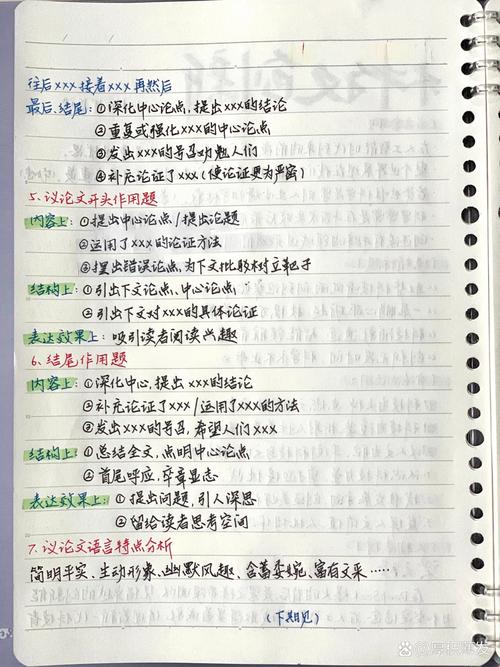 往后×××接着×××再然后
最后、结尾:①深化中心论点,提出×××的结论
②重复或强化×××的中心论点
③发出×××的号召劝勉人们
④补充论证了×××(使论证更为严密)
5.议论文开头作用题
内容上:①提出中心论点/提出论题
②运用了×××的论证方法
③摆出错误论点,为下文批驳树立靶子
结构上:①引出下文论点、中心论点
②引出下文对×××的具体论证
表达效果上:吸引读者阅读兴趣
6.结尾作用题
内容上:①深化中心,提出×××的结论
②补充论证了×××/运用了×××的方法
③发出×××的号召,希望人们×××
结构上:①总结全文,点明中心论点
②首尾呼应,卒章显志
表达效果上:①提出问题,引人深思
②留给读者思考空间
7.议论文语言特点分析
简明平实、生动形象、幽默风趣、含蓄委婉,富有文采……
(下期见)
@厚积薄发